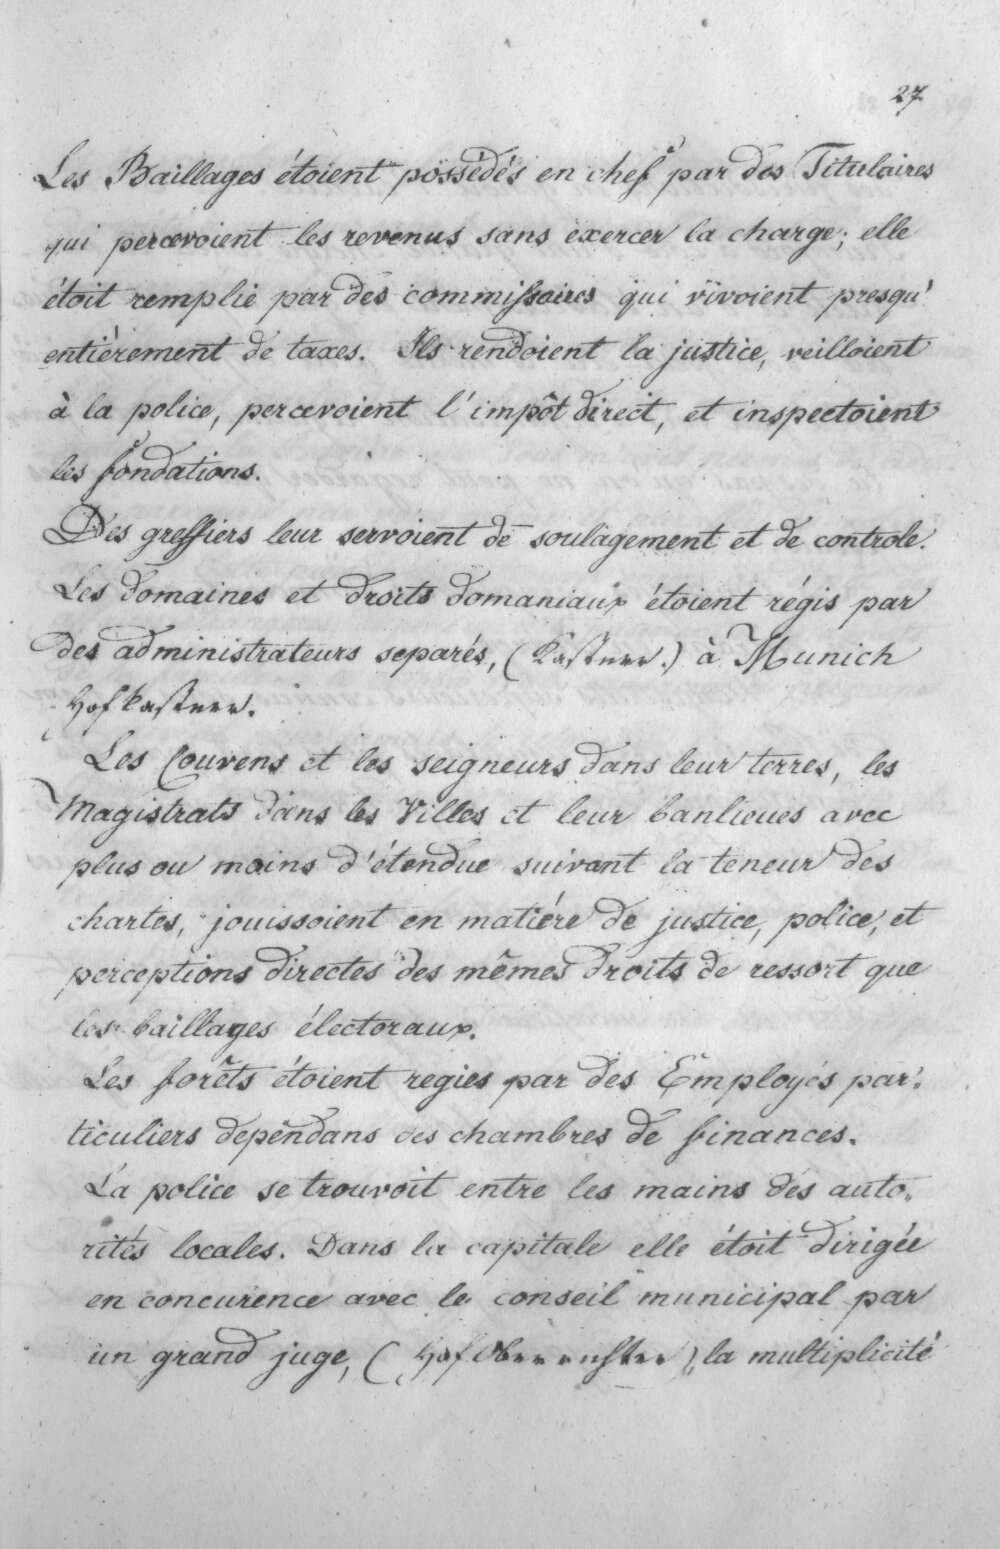 27
Les Baillages étoient possédés en chef par des Titulaires
qui percevoient les revenus sans exercer la charge; elle
étoit remplie par des commissaires qui vivoient presqu'
entièrement de taxes. Ils rendoient la justice, veilloient
à la police, percevoient l'impôt direct, et inspectoient
les fondations.
Des greffiers leur servoient de soulagement et de controle.
Les domaines et droits domaniaux étoient régis par
des administrateurs separés, (Kastner.) à Munich
Hofkastner.
Les Couvens et les seigneurs dans leur terres, les
Magistrats dans les Villes et leur banlieues avec
plus ou moins d'étendue suivant la teneur des
chartes, jouissoient en matiére de justice, police, et
perceptions directes des mêmes droits de ressort que
les baillages électoraux.
Les forêts étoient regies par des Employés par„
ticuliers dependans des chambres de finances.
La police se trouvoit entre les mains des auto„
rités locales. Dans la capitale elle étoit dirigée
en concurence avec le conseil municipal par
un grand juge, (Hof Oberrichter), la multiplicité